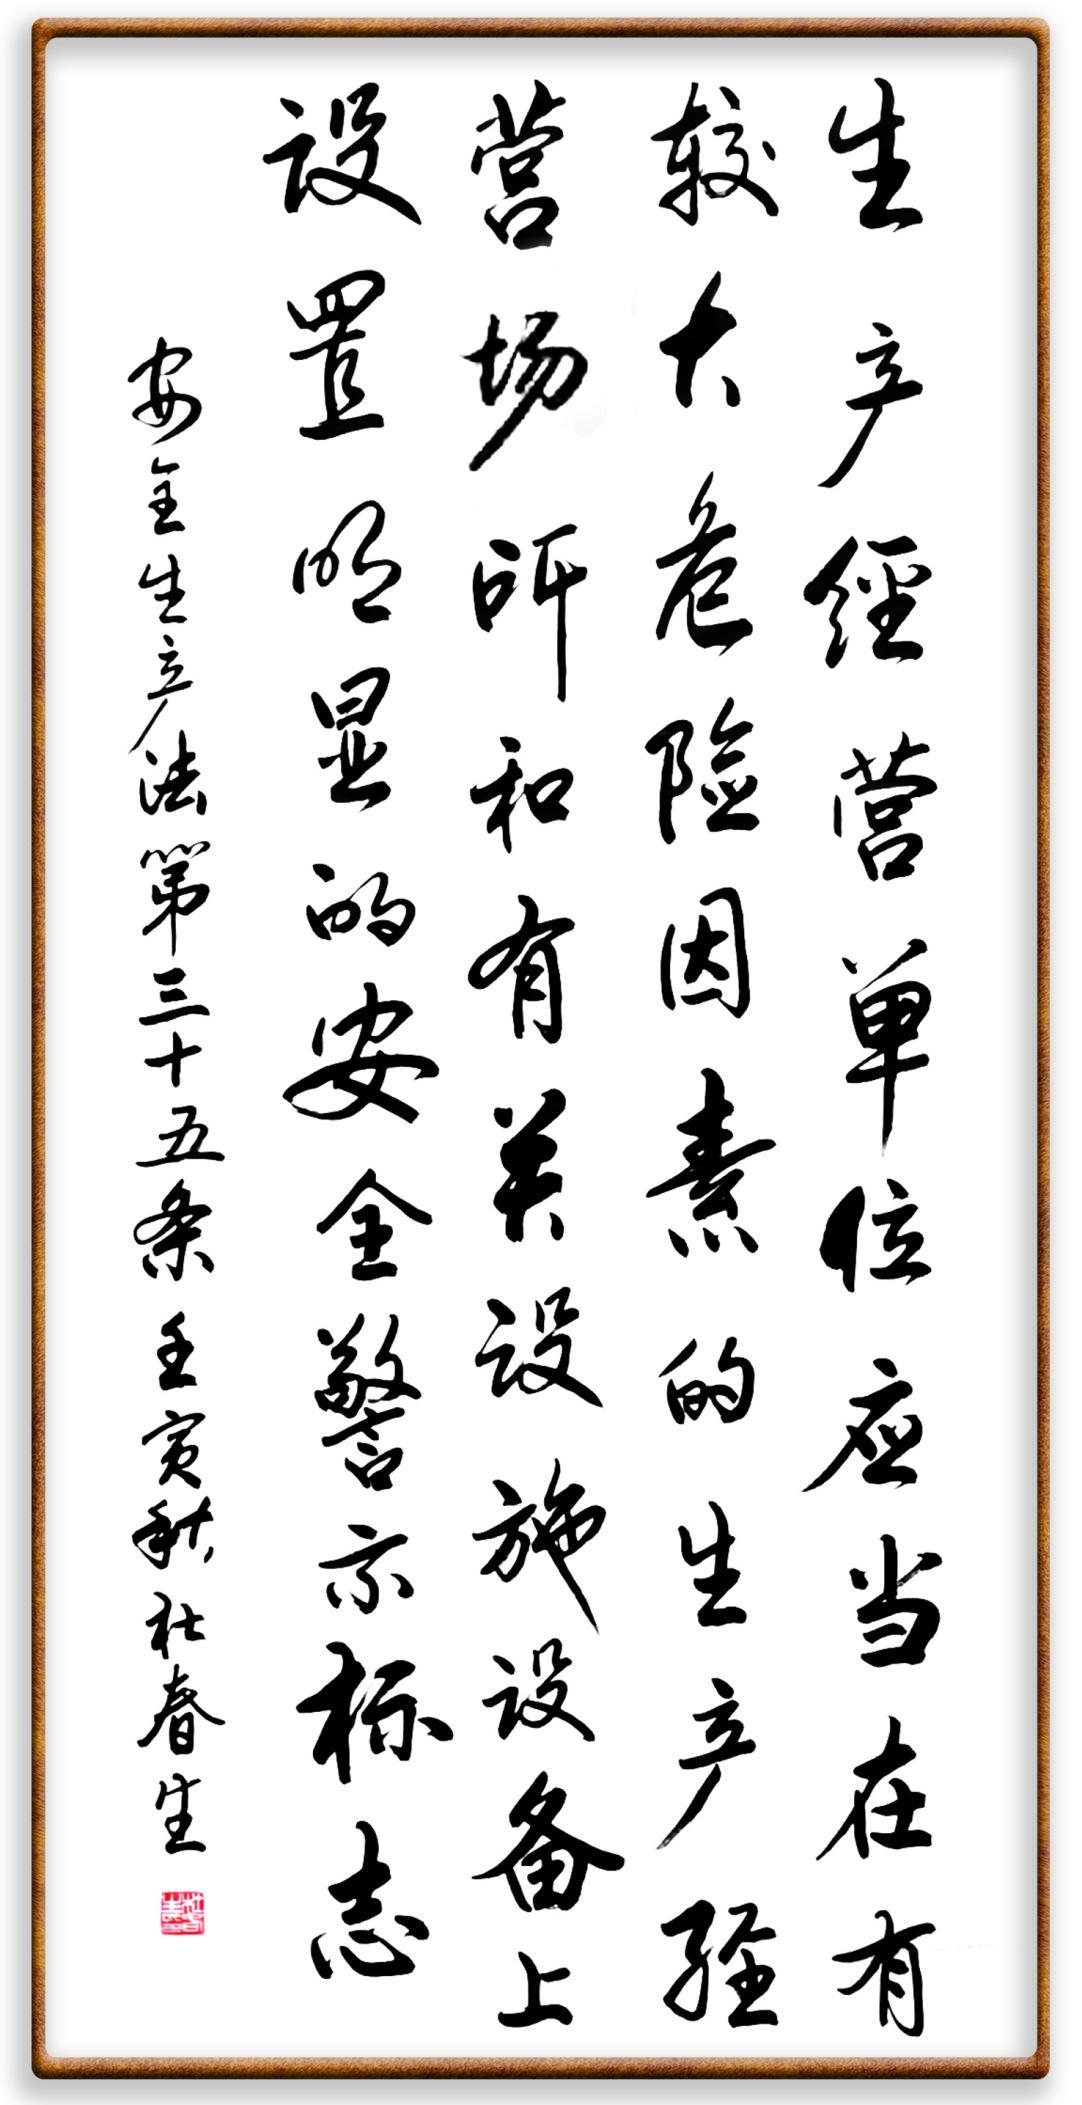 生产經营单位应当在有
较大危险因素的生产经
营场所和有关设施设备上
设置明显的安全警示标志
安全生产法第三十五条 壬寅秋 杜春生